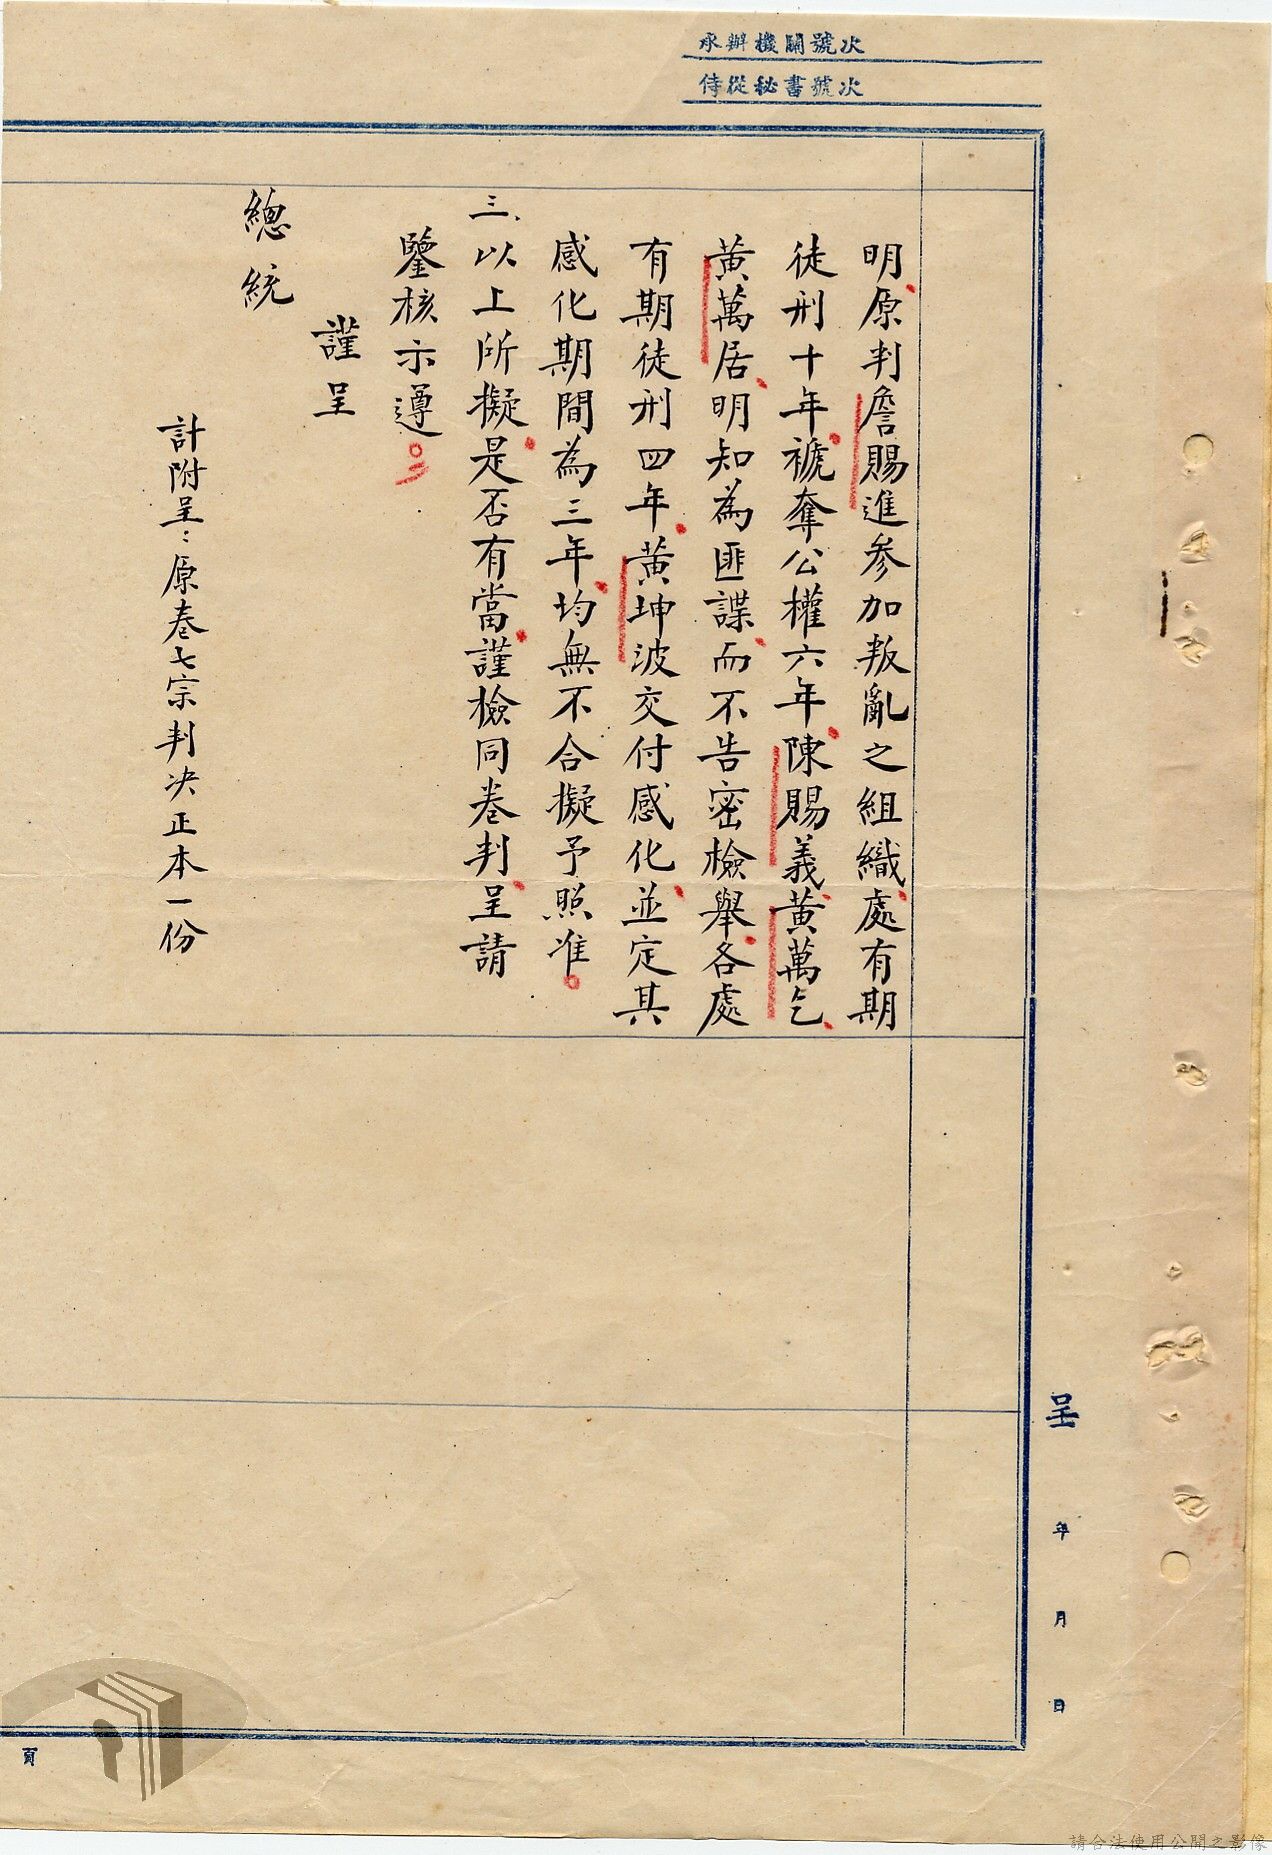 承辦機關號次
侍從秘書號次
呈 年 月 日
明原判詹賜進參加叛亂之組織處有期
徒刑十年褫奪公權六年陳賜義黃萬乞
黃萬居明知為匪諜而不告密檢舉各處
有期徒刑四年黃坤波交付感化並定其
感化期間為三年均無不合擬予照准。
三、以上所擬是否有當謹檢同卷判呈請
鑒核示遵。
謹呈
總統
計附呈：原卷七宗判決正本一份
頁
請合法使用公開之影像